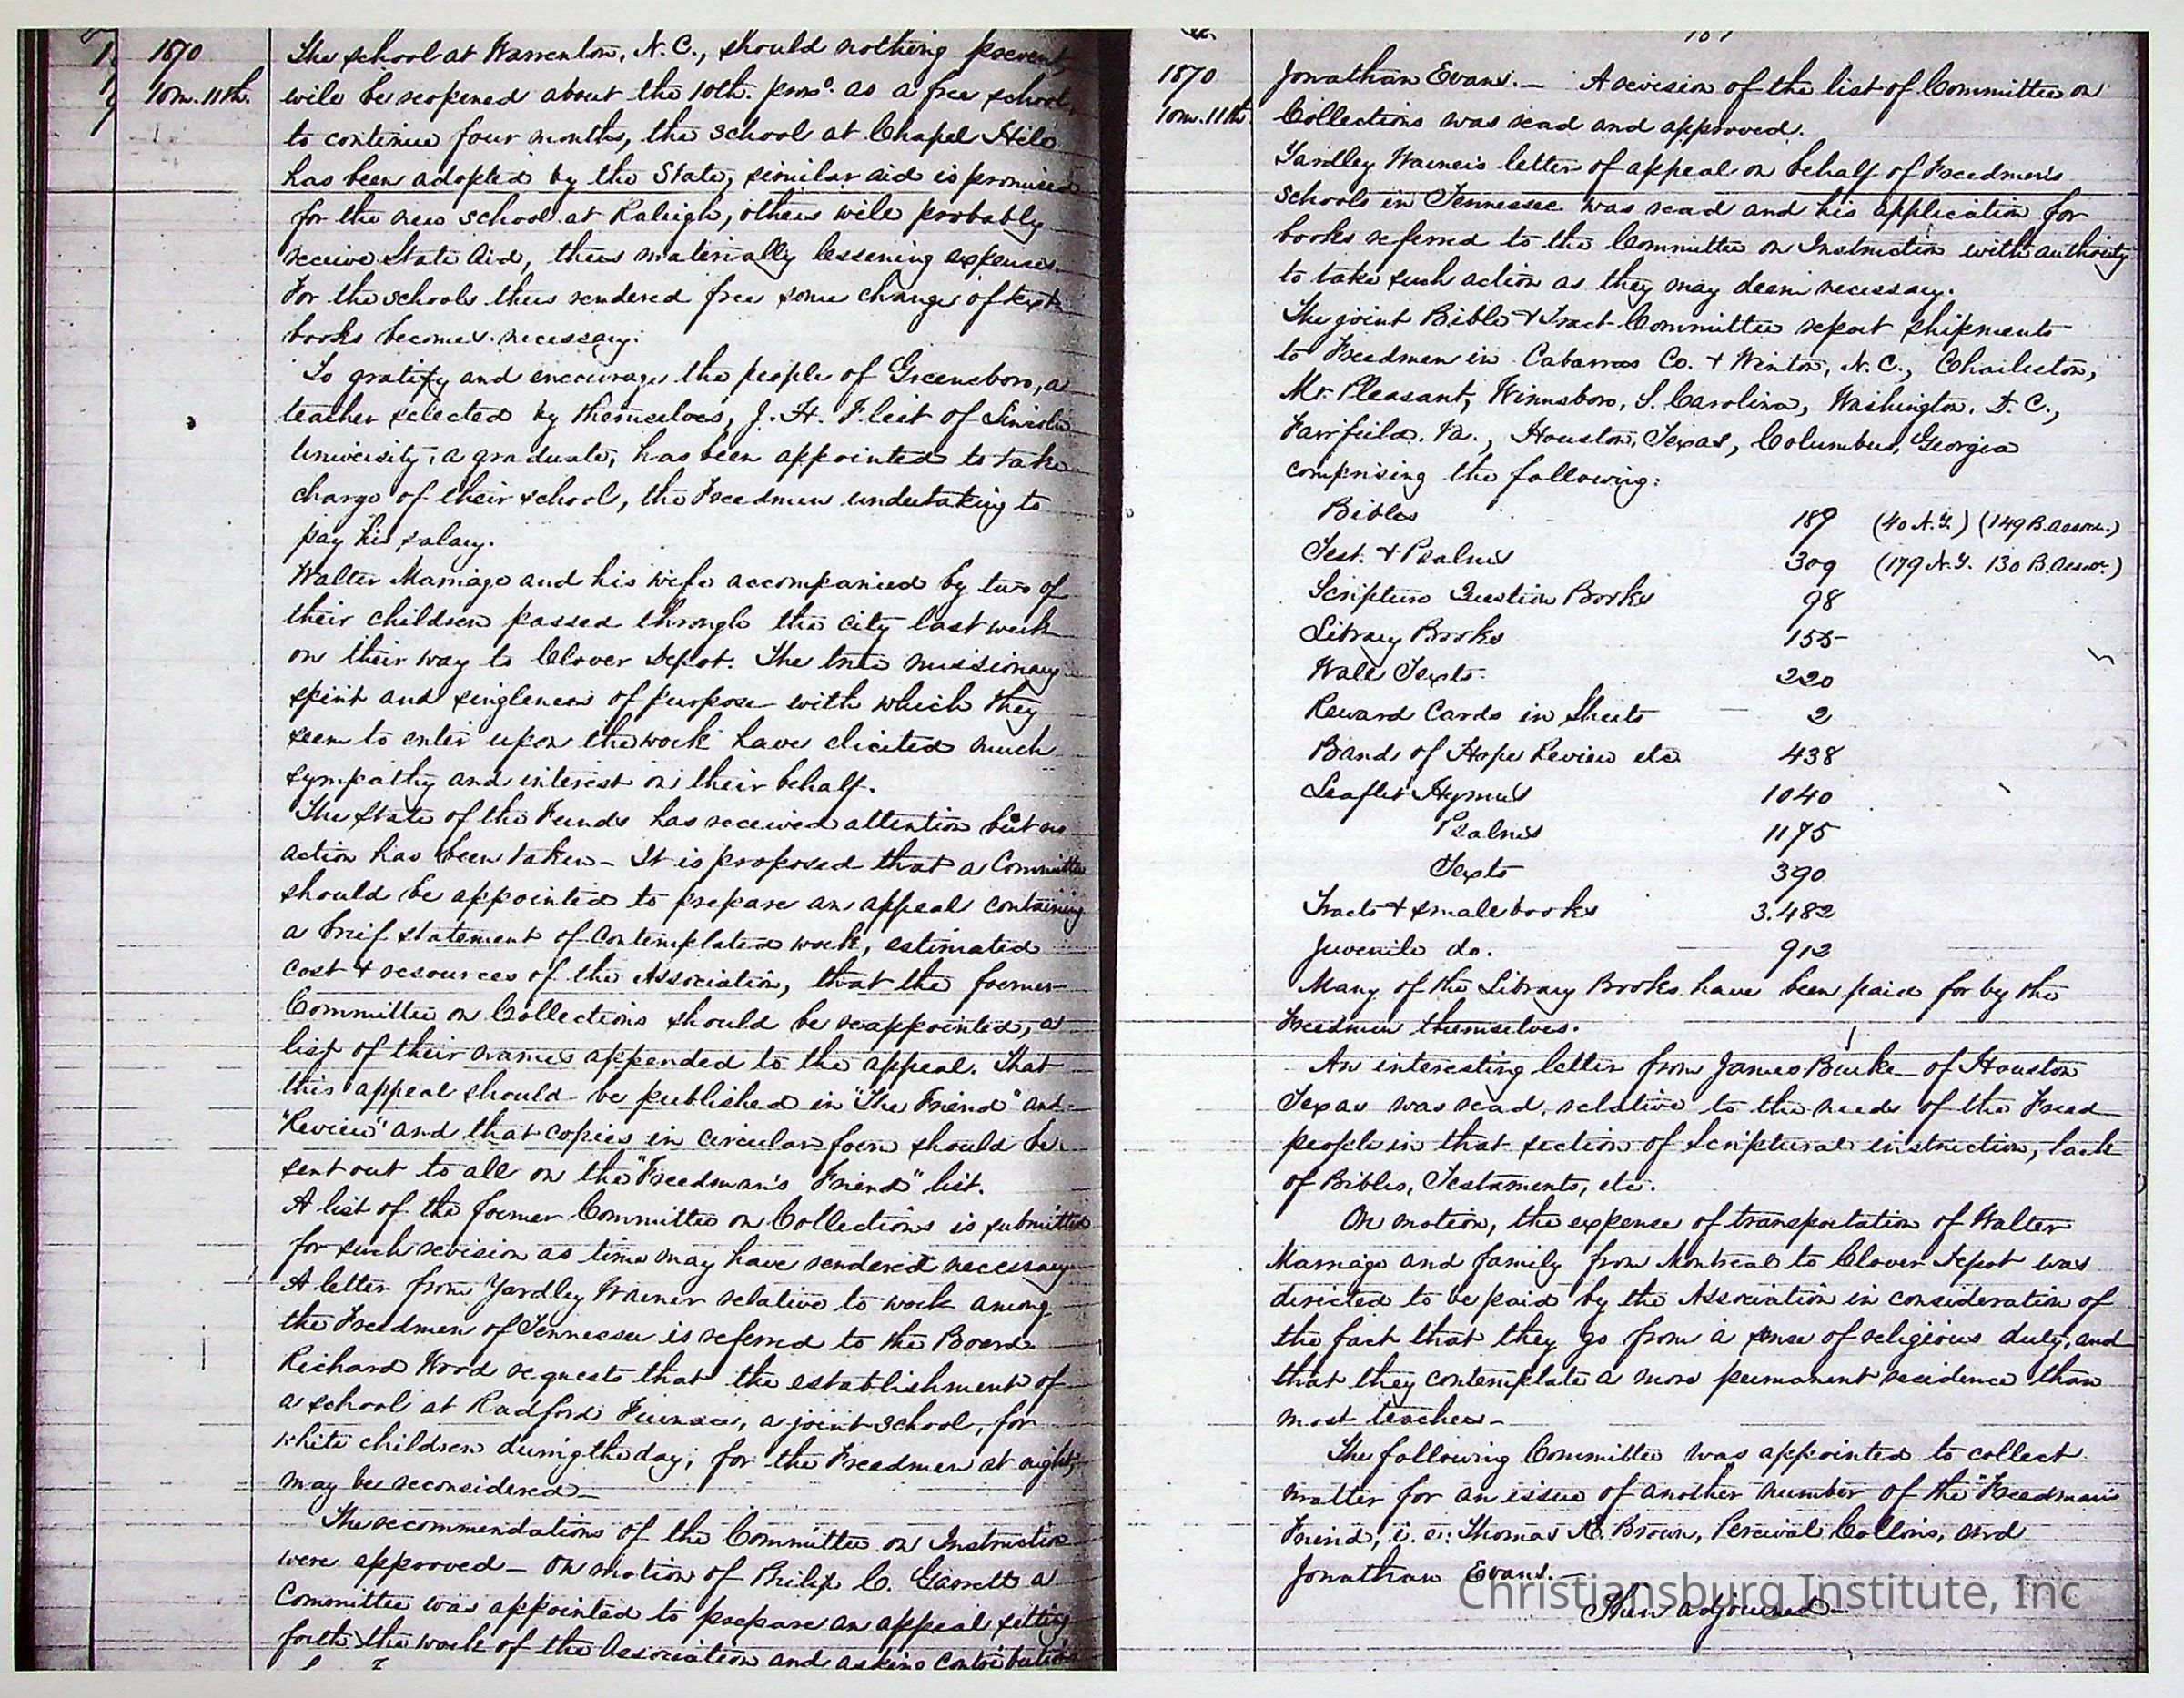 1870
10m. 11th.
The school at Warrenton, N.C., should nothing prevent,
will be reopened about the 10th. proxo. as a free school,
to continue four months, the school at Chapel Hill
has been adopted by the State, similar aid is promised
for the new school at Raleigh, others will probably
receive State Aid, thus materially lessening expenses.
For the schools thus rendered free some change of text
books becomes necessary.
To gratify and encourage the people of Greensboro, a
teacher selected by themselves, J. H. Fleet of Lincoln
University, a graduate, has been appointed to take
charge of their school, the Freedmen undertaking to
pay his salary.
Walter Marriage and his wife accompanied by two of
their children passed through the city last week
on their way to Clover Depot. The true missionary
spirit and singleness of purpose with which they
seem to enter upon the work have elicited much
sympathy and interest on their behalf.
The State of the Funds has received attention but no
action has been taken – It is proposed that a Committee
should be appointed to prepare an appeal containing
a brief statement of contemplated work, estimated
cost & resources of the Association, that the former
Committee on Collections should be reappointed, a
list of their names appended to the appeal. That
this appeal should be published in "The Friend" and
"Review" and that copies in circular form should be
sent out to all on the "Freedman's Friend" list.
A list of the former Committee on Collections is submitted
for such revision as time may have rendered necessary.
A letter from Yardley Warner relative to work among
the Freedmen of Tennessee is referred to the Board.
Richard Wood requests that the establishment of
a school at Radford Furnace, a joint school, for
white children during the day, for the Freedmen at night,
may be reconsidered –
The recommendations of the Committee on Instruction
were approved – On motion of Philip C. Garrett a
Committee was appointed to prepare an appeal setting
forth the work of the Association and asking contributions
187
1870
10m. 11th.
Jonathan Evans. – A revision of the list of Committee on
Collections was read and approved.
Yardley Warner's letter of appeal on behalf of Freedmen's
schools in Tennessee was read and his application for
books referred to the Committee on Instruction with authority
to take such action as they may deem necessary.
The joint Bible & Tract Committee report shipments
to Freedmen in Cabarras Co. & Winton, N.C., Charleston,
Mt. Pleasant, Winnsboro, S. Carolina, Washington, D.C.,
Fairfield, Va., Houston, Texas, Columbus, Georgia
comprising the following:
Bibles 189 (40 N.Y.) (149 B. Assoc.)
Test. & Psalms 309 (179 N.Y. 130 B. Assoc.)
Scripture Question Books 98
Library Books 155
Wall Texts 220
Reward Cards in Sheets – 2
Bands of Hope Review etc 438
Leaflet Hymns 1040
Psalms 1175
Texts 390
Tracts & small books 3.482
Juvenile do. – 912
Many of the Library Books have been paid for by the
Freedmen themselves.
An interesting letter from James Burke of Houston
Texas was read, relative to the needs of the Freed
people in that section of Scriptural instruction, lack
of Bibles, Testaments, etc.
On motion, the expense of transportation of Walter
Marriage and family from Montreal to Clover Depot was
directed to be paid by the Association in consideration of
the fact that they go from a sense of religious duty, and
that they contemplate a more permanent residence than
most teachers –
The following Committee was appointed to collect
matter for an issue of another number of the "Freedman's
Friend, i.e: Thomas K. Brown, Percival Collins, and
Jonathan Evans. –
Then adjourned –
Christiansburg Institute, Inc